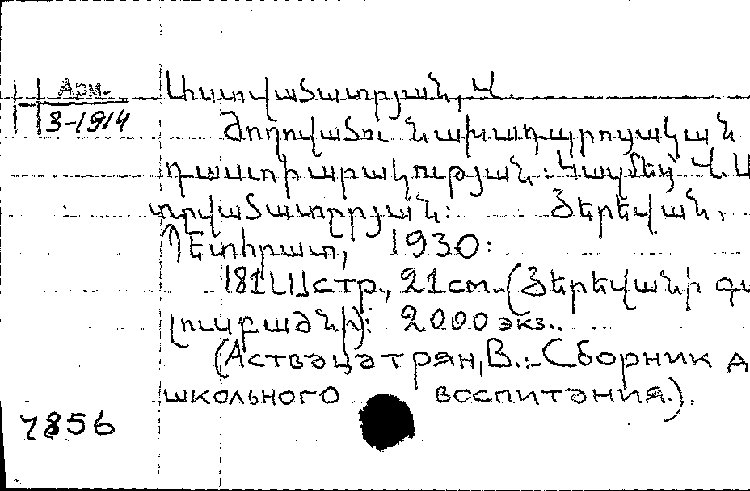 Арм.
3-1914
Աստվածատրյան, Վ.
Ժողովածու նախադպրոցական
դաստիարակության: Կազմեց Վ. Ա
տըվածատըրյան: Յերեվան,
Պետհրատ, 1930:
181 стр., 21 см. (Յերեվանի գ
լուսբաժնի): 2000 экз..
(Аствацатрян, В. :-Сборник д
школьного воспитания.).
7856